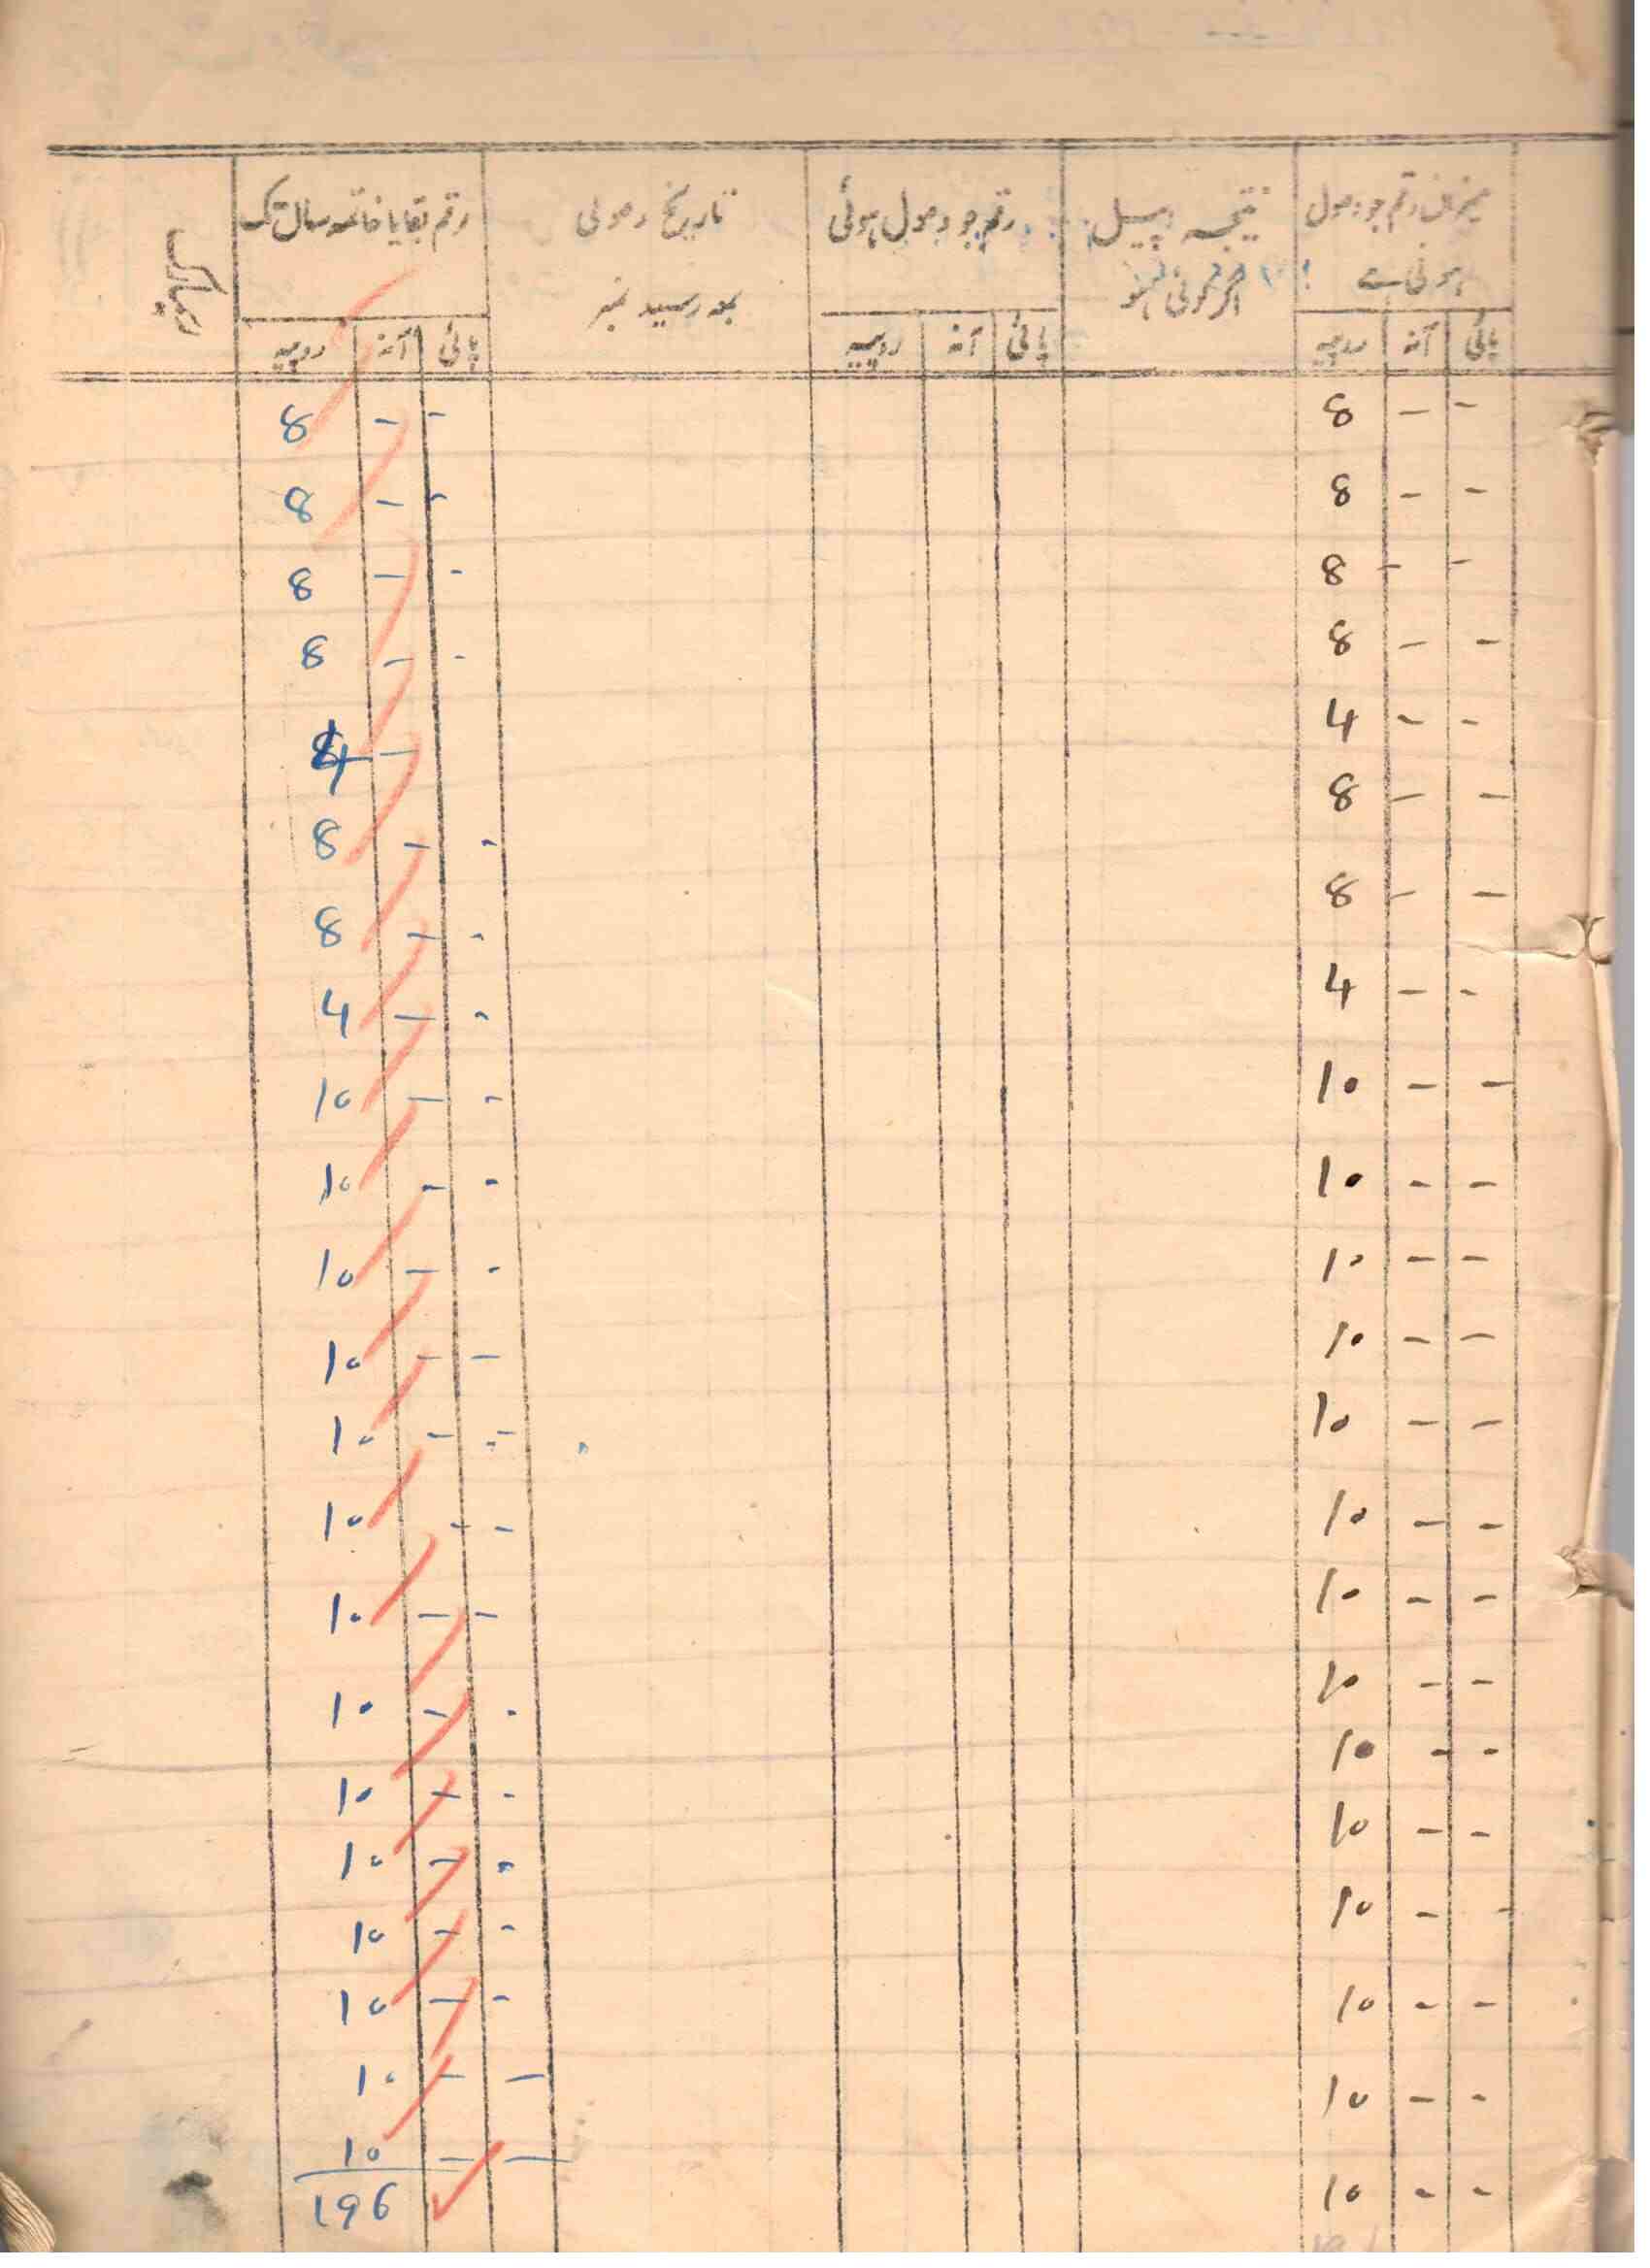 میزان رقم جو وصول نتیجہ اپیل رقم جو وصول ہوئی تاریخ وصولی رقم بقایا خاتمہ سال تک ریمارکس
ہونی ہے اگر کوئی ہو بمعہ رسید نمبر
پائی آنہ روپیہ پائی آنہ روپیہ پائی آنہ روپیہ
- - 8 - - 8
- - 8 - - 8
- - 8 - - 8
- - 8 - - 8
- - 4 - 4
- - 8 - - 8
- - 8 - - 8
- - 4 - - 4
- - 10 - - 10
- - 10 - - 10
- - 10 - - 10
- - 10 - - 10
- - 10 - - 10
- - 10 - - 10
- - 10 - - 10
- - 10 - - 10
- - 10 - - 10
- - 10 - - 10
- - 10 - - 10
- - 10 - - 10
- - 10 - - 10
- - 10 - - 10
196